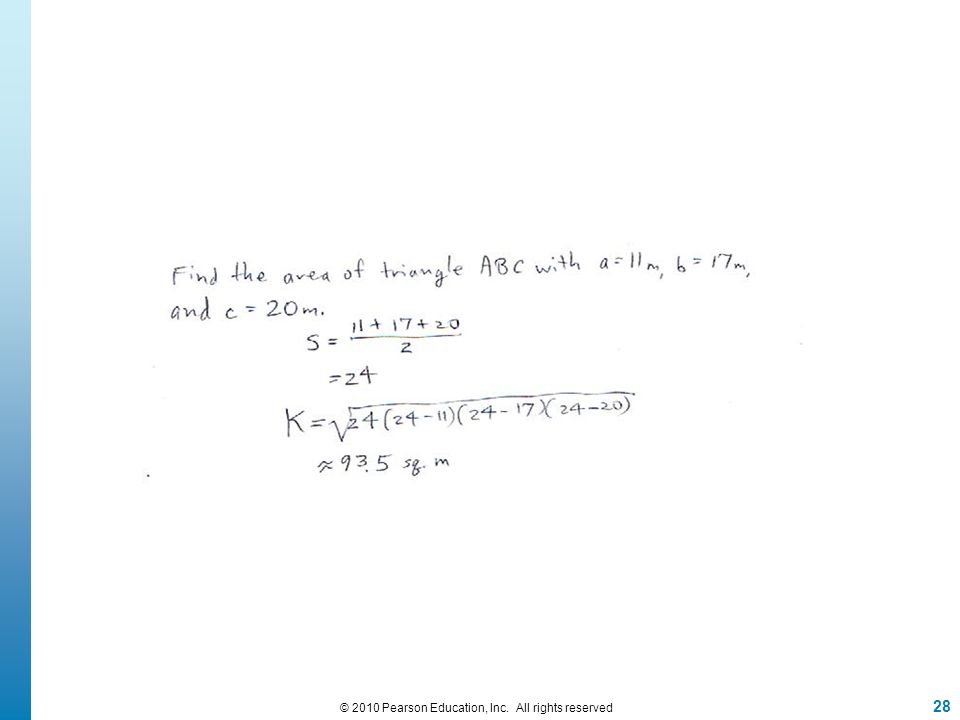 Find the area of triangle ABC with a=11m, b=17m,
and c=20m.
S = 11+17+20 / 2
=24
K=√24(24-11)(24-17)(24-20)
≈93.5 sq. m
© 2010 Pearson Education, Inc. All rights reserved
28